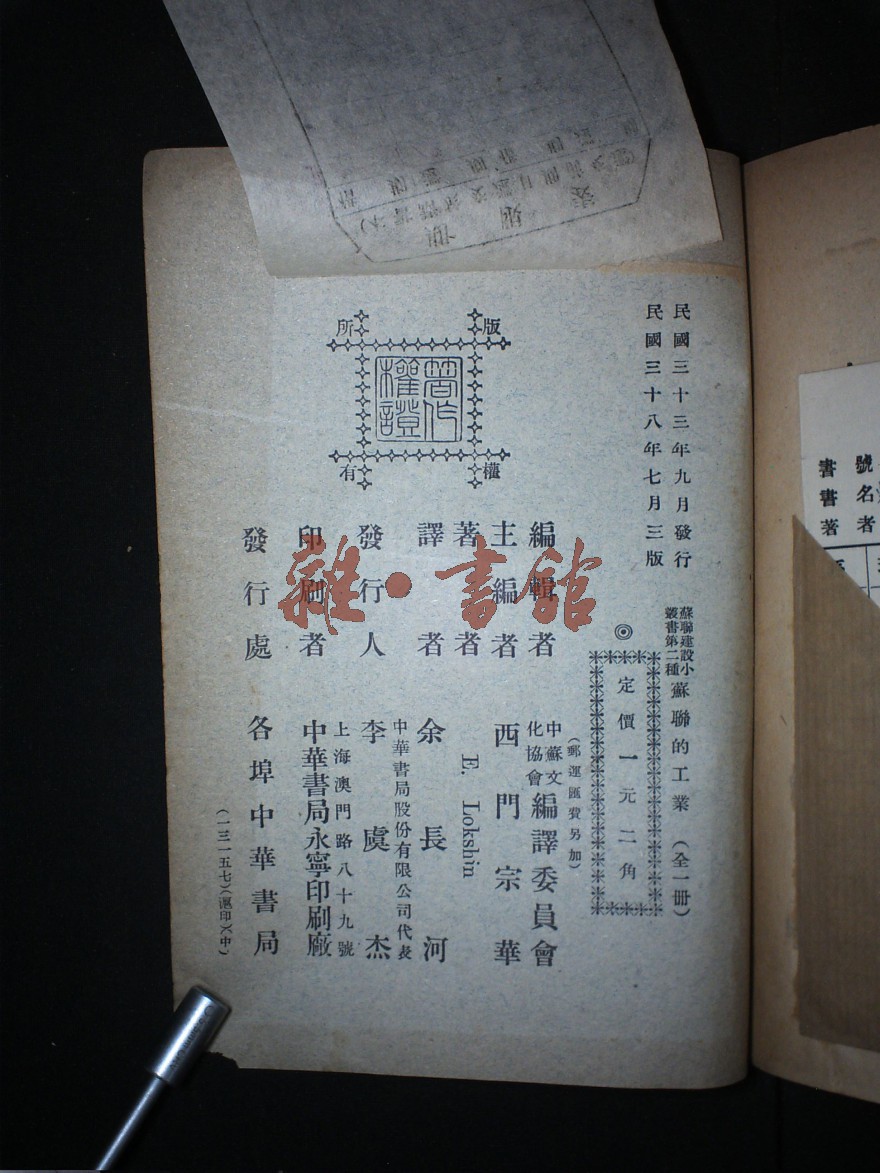 民國三十三年九月發行
民國三十八年七月三版
蘇聯建設小叢書第二種
蘇聯的工業(全一册)
◎定價一元二角
(郵運匯費另加)
編輯者 中蘇文化協會編譯委員會
主編者 西門宗華
著者 E. Lokshin
譯者 余長河
發行人 中華書局股份有限公司代表 李虞杰
印刷者 上海澳門路八十九號 中華書局永寧印刷廠
發行處 各埠中華書局
(一三一五七)(滬印)(中)
版權所有
著作權證
雜·書館
書號
書名
著者